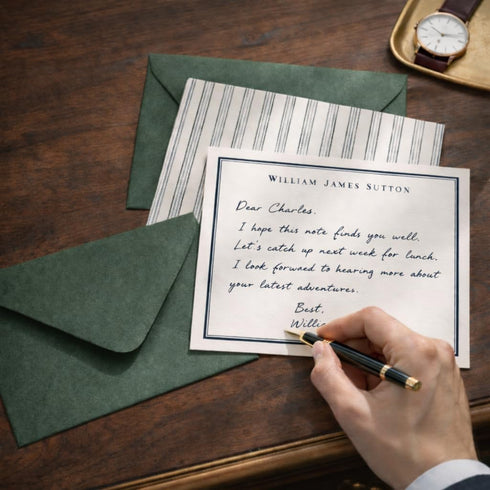 William James Sutton
Dear Charles,
I hope this note finds you well.
Let's catch up next week for lunch.
I look forward to hearing more about
your latest adventures.
Best,
Willi